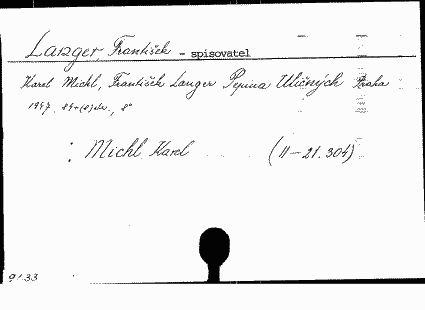 Langer, František - spisovatel
Karel Michl, František Langer Pepina Uličných Praha
1947. 84+(8) str., 8°
: Michl Karel (11-21.304)
9133